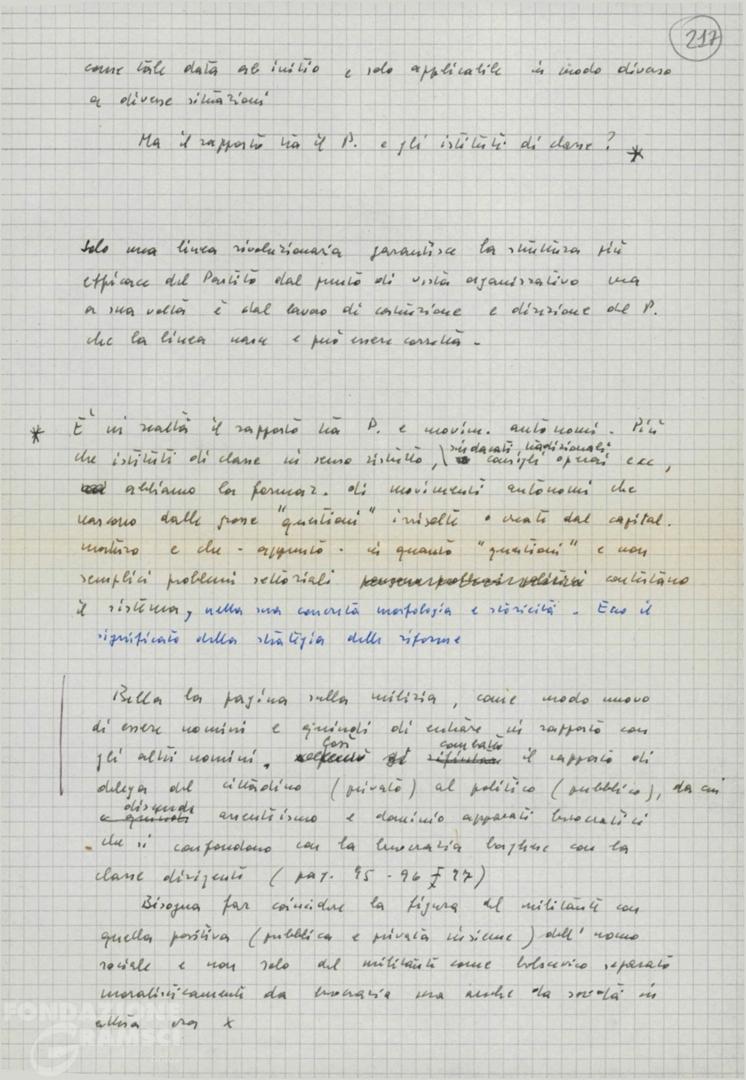 217
come tale data ab initio e solo applicabile in modo diverso
a diverse situazioni
Ma il rapporto tra il P. e gli istituti di classe? *
Solo una linea rivoluzionaria garantisce la struttura più
efficace del Partito dal punto di vista organizzativo ma
a sua volta è dal lavoro di costruzione e direzione del P.
che la linea nasce e può essere corretta.
* È in realtà il rapporto tra P. e movim. autonomi. Più
sindacati tradizionali
che istituti di classe in senso ristretto, consigli operai ecc,
abbiamo la formaz. di movimenti autonomi che
nascono dalle grosse "questioni" irrisolte o create dal capital.
maturo e che - appunto - in quanto "questioni" e non
semplici problemi settoriali contestano
il sistema, nella sua concreta morfologia e storicità. Ecco il
significato della strategia delle riforme
Bella la pagina sulla milizia, come modo nuovo
di essere uomini e quindi di entrare in rapporto con
così combatte
gli altri uomini. il rapporto di
delega del cittadino (privato) al politico (pubblico), da cui
discende
assenteismo e dominio apparati burocratici
che si confondono con la burocrazia borghese con la
classe dirigente (pag. 95 - 96 I 97)
Bisogna far coincidere la figura del militante con
quella positiva (pubblica e privata insieme) dell'uomo
sociale e non solo del militante come bolscevico separato
moralisticamente da burocrazia ma anche da società in
attesa ora x
FONDAZIONE
GRAMSCI